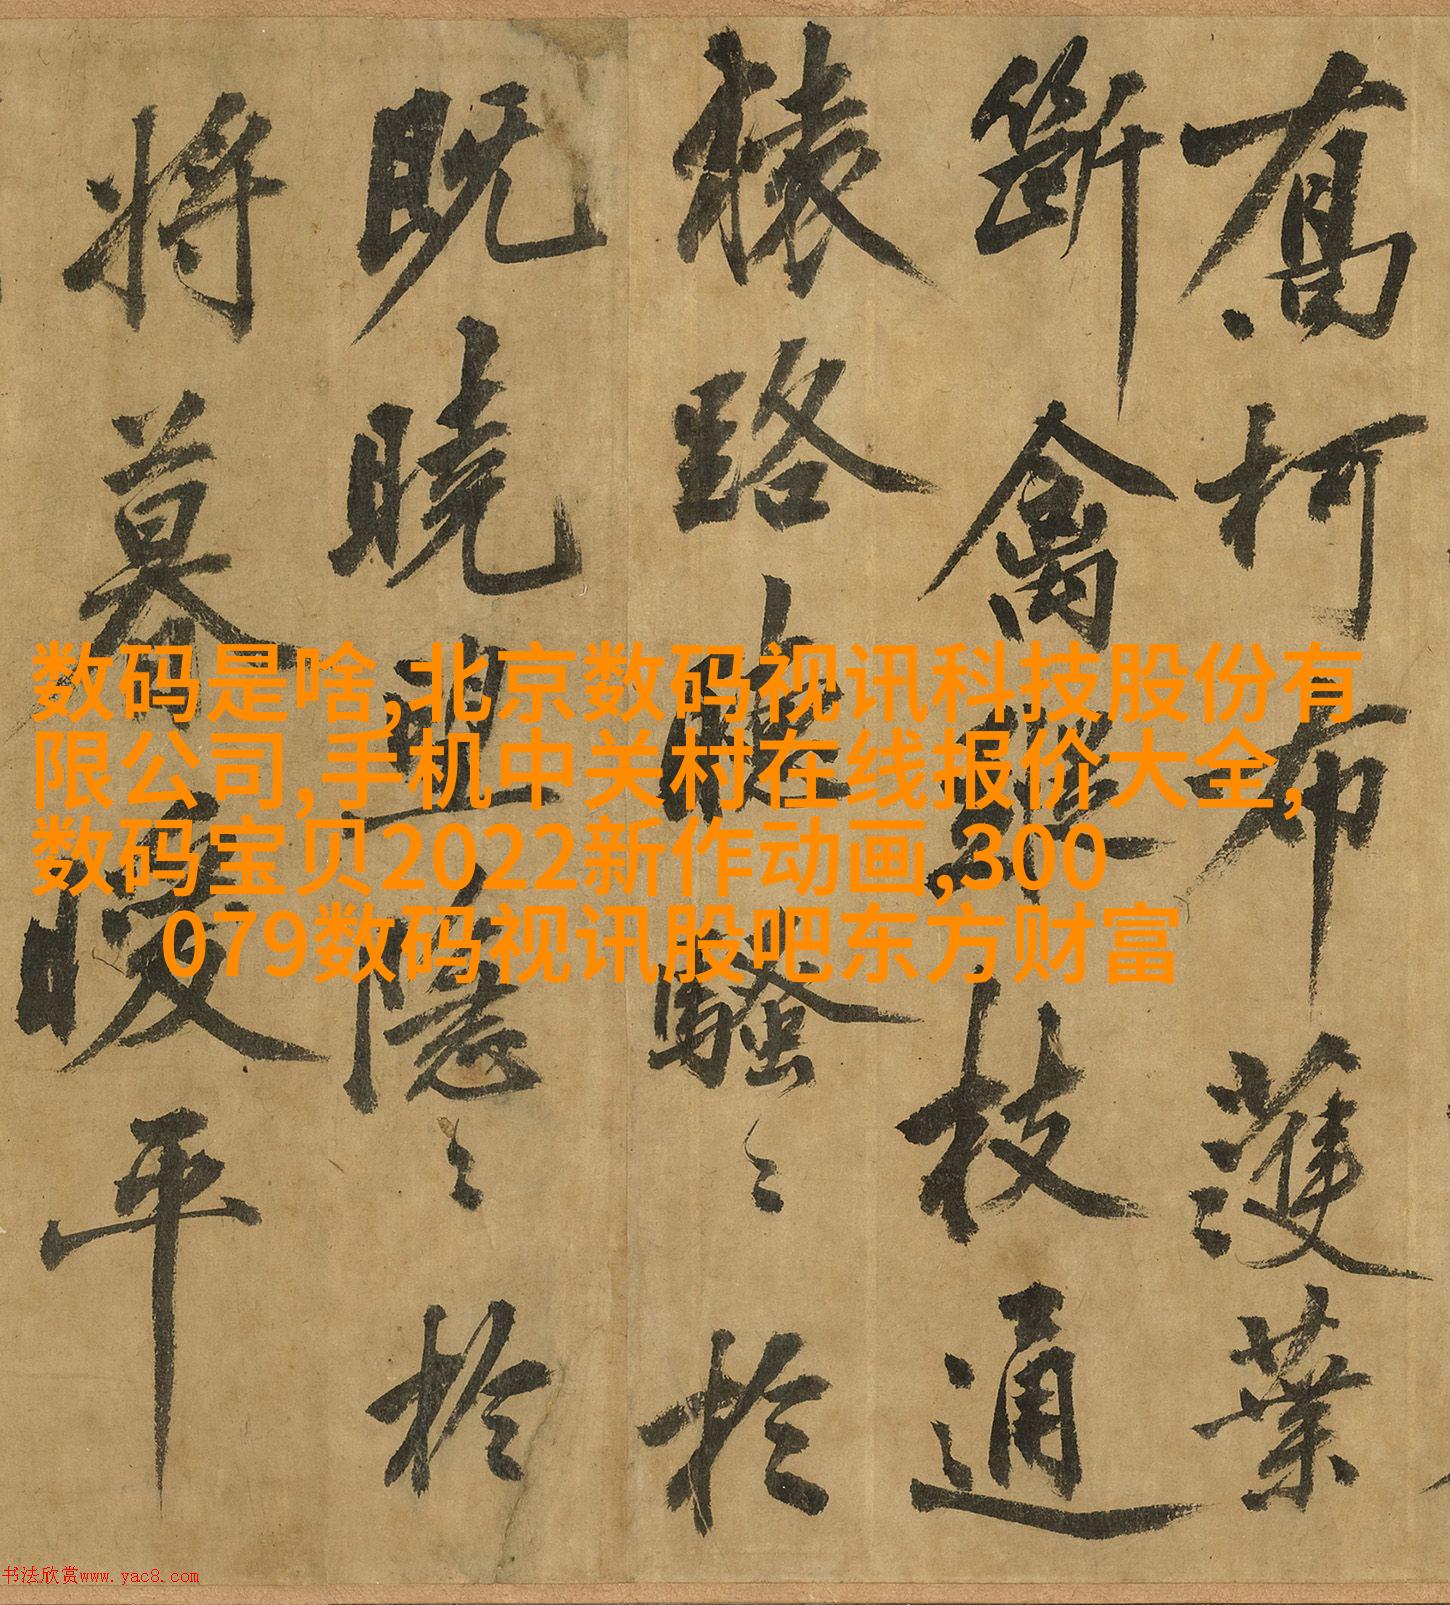 喬柯布濩葉
斷禽蹤枝通
猿路聽騷〻於
既曉望隱〻於
將暮暖平
数码是啥,北京数码视讯科技股份有
限公司,手机中关村在线报价大全,
数码宝贝2022新作动画,300
079数码视讯股吧东方财富
书法欣赏www.yac8.com